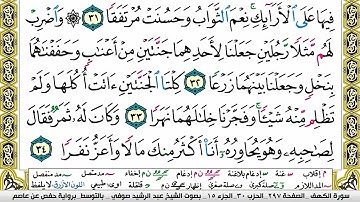 فِيهَا عَلَى ٱلْأَرَآئِكِ ۚ نِعْمَ ٱلثَّوَابُ وَحَسُنَتْ مُرْتَفَقًا ٣١ ۞ وَٱضْرِبْ
لَهُم مَّثَلًا رَّجُلَيْنِ جَعَلْنَا لِأَحَدِهِمَا جَنَّتَيْنِ مِنْ أَعْنَٰبٍ وَحَفَفْنَٰهُمَا
بِنَخْلٍ وَجَعَلْنَا بَيْنَهُمَا زَرْعًا ٣٢ كِلْتَا ٱلْجَنَّتَيْنِ ءَاتَتْ أُكُلَهَا وَلَمْ
تَظْلِم مِّنْهُ شَيْـًٔا ۚ وَفَجَّرْنَا خِلَٰلَهُمَا نَهَرًا ٣٣ وَكَانَ لَهُۥ ثَمَرٌ فَقَالَ
لِصَٰحِبِهِۦ وَهُوَ يُحَاوِرُهُۥٓ أَنَا۠ أَكْثَرُ مِنكَ مَالًا وَأَعَزُّ نَفَرًا ٣٤
سورة الكهف . الصفحة ٢٩٧ . الحزب ٣٠ . الجزء ١٥ . بصوت الشيخ عبد الرشيد صوفي . بالتوسط . برواية حفص عن عاصم